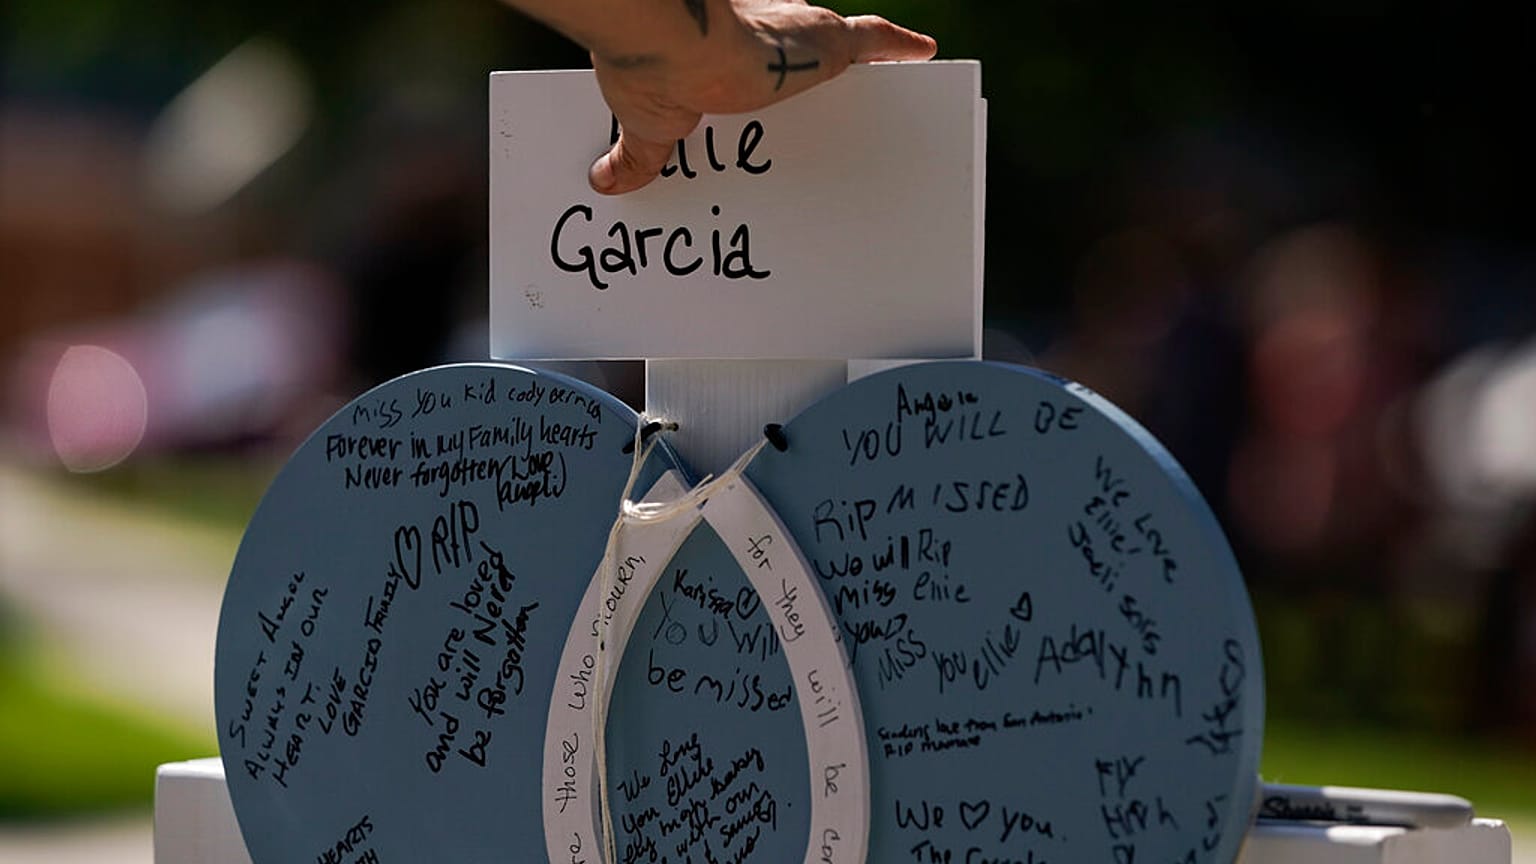 llie
Garcia
Miss you kid cody
Forever in my Family hearts
Never forgotten (Love
Angeli)
♡ RIP
You are loved
and will Never
be forgotten
Sweet Angel
Always in our
Heart.
Love
Garcia Family
Hearts
those who mourn,
for they will be co
Karissa ♡
You Will
be missed
We Love
You Ellie
with our
Angela
YOU WILL BE
Rip MISSED
We will Rip
Miss Ellie
You
Miss you ellie ♡
We Love
Ellie!
Adalynn
Sending love from San Antonio
RIP
Fly
High
We ♡ you.
The
Sharpie